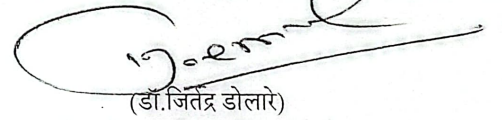 (डॉ.जितेंद्र डोलारे)